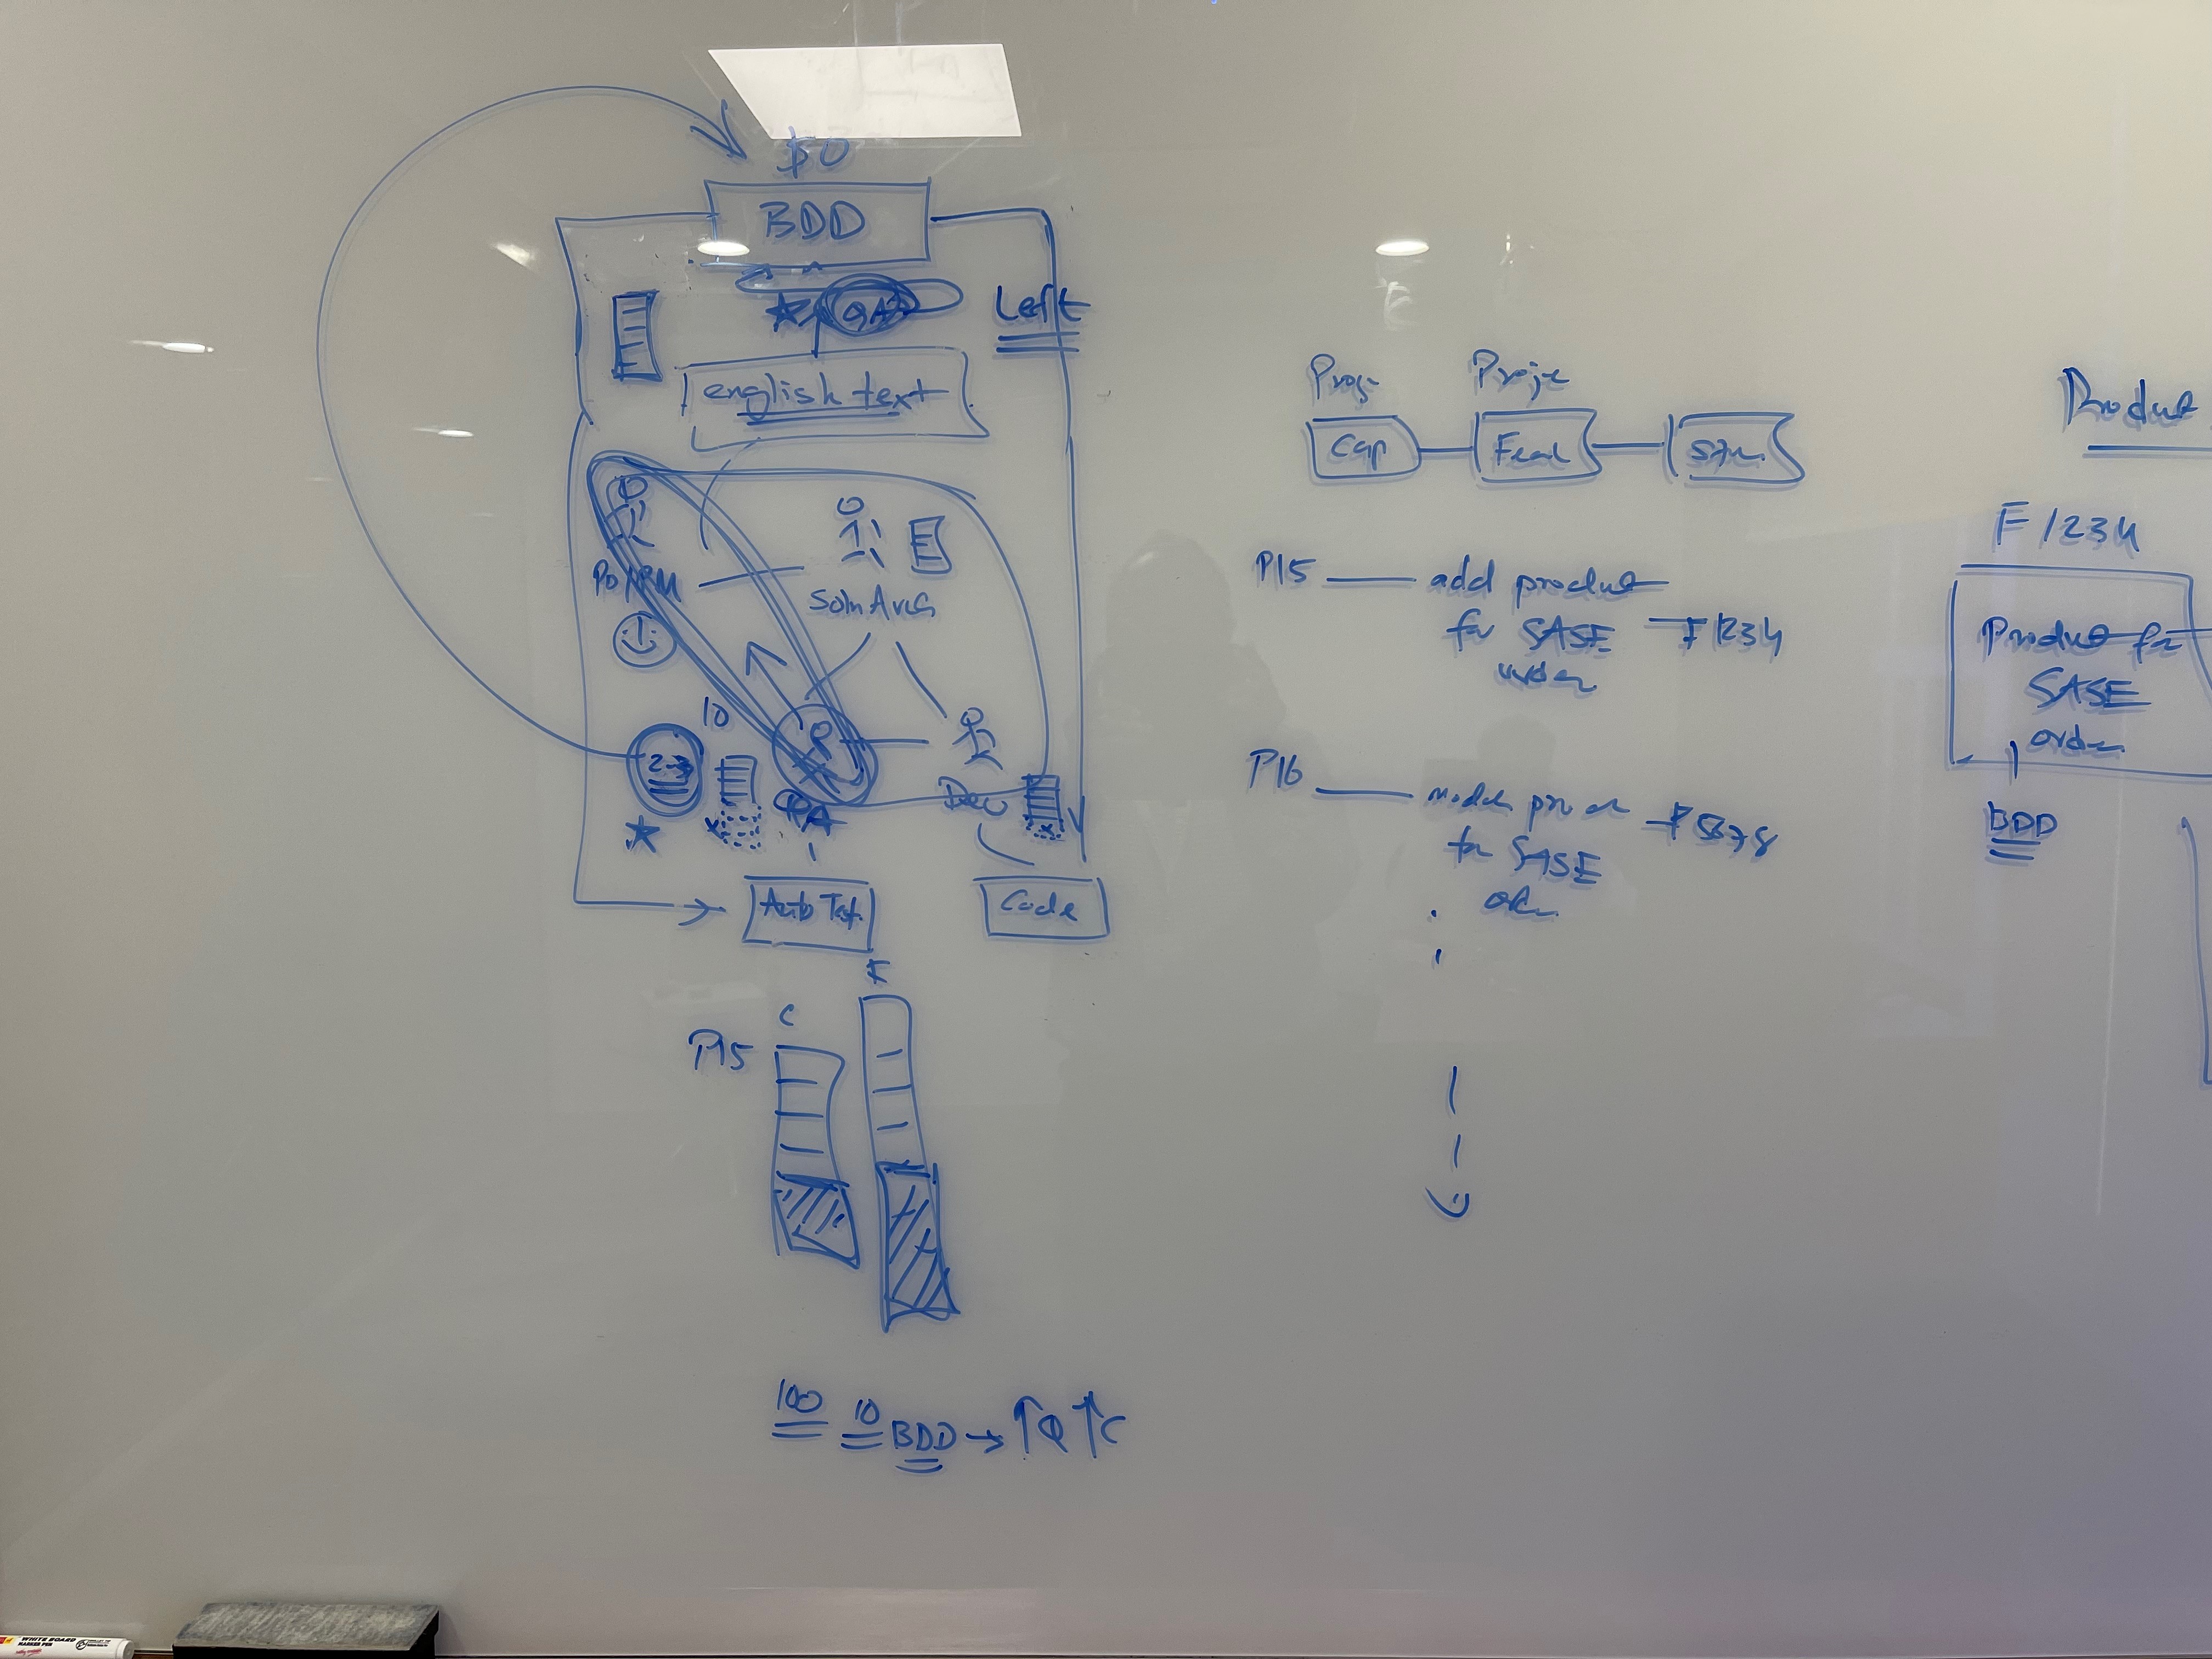 $0
BDD
QA
Left
english text
PO/PM
Soln Arch
10
2-3
QA
Dev
Auto Test
Code
C
F
P15
100 10 BDD → ↑Q ↑C
Proj
Proje
Cap
Feat
P15 — add product
for SASE — F1234
order
P16
for SASE — F5678
Product
F1234
Product for
SASE
order
BDD
WHITE BOARD
MARKER PEN